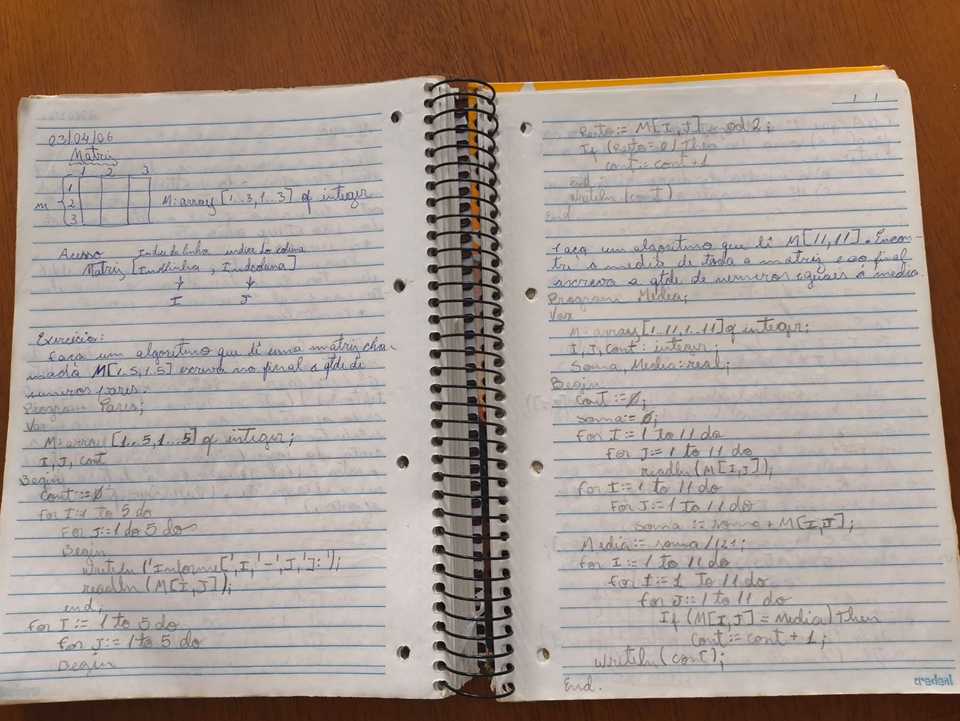 03/04/06
Matriz
1 2 3
1
m 2 M:array [1..3,1..3] of integer
3
Acesso Indice da linha indice da coluna
Matriz [Indlinha, Indcoluna]
I J
Exercício:
Faça um algoritmo que lê uma matriz cha-
mada M[1..5,1..5] escreva no final a qtde de
numeros pares.
Program Pares;
Var
M:array [1..5,1..5] of integer;
I, J, cont
Begin
Cont:=0
for I:=1 to 5 do
For J:=1 do 5 do
Begin
writeln ('Informe[',I,'-',J,']:');
readln (M[I,J]);
end;
for I := 1 to 5 do
for J := 1 to 5 do
Begin
Resto:= M[I,J] mod 2;
If (Resto=0) Then
cont:=cont+1
end
writeln (cont)
End
Faça um algoritmo que lê M[11,11]. Encon-
tre a media de toda a matriz e ao final
escreva a qtde de numeros iguais á media.
Program Media;
Var
M:array[1..11,1..11] of integer;
I, J, cont: integer;
Soma, Media:real;
Begin
Cont:=0;
soma:=0;
for I:=1 to 11 do
for J:=1 to 11 do
readln (M[I,J]);
for I:=1 to 11 do
For J:=1 to 11 do
soma := soma + M[I,J];
Media:= soma/121;
for I:=1 to 11 do
for I:=1 To 11 do
for J:=1 to 11 do
If (M[I,J] = Media) Then
Cont:= cont + 1;
writeln (cont);
End.
credeal